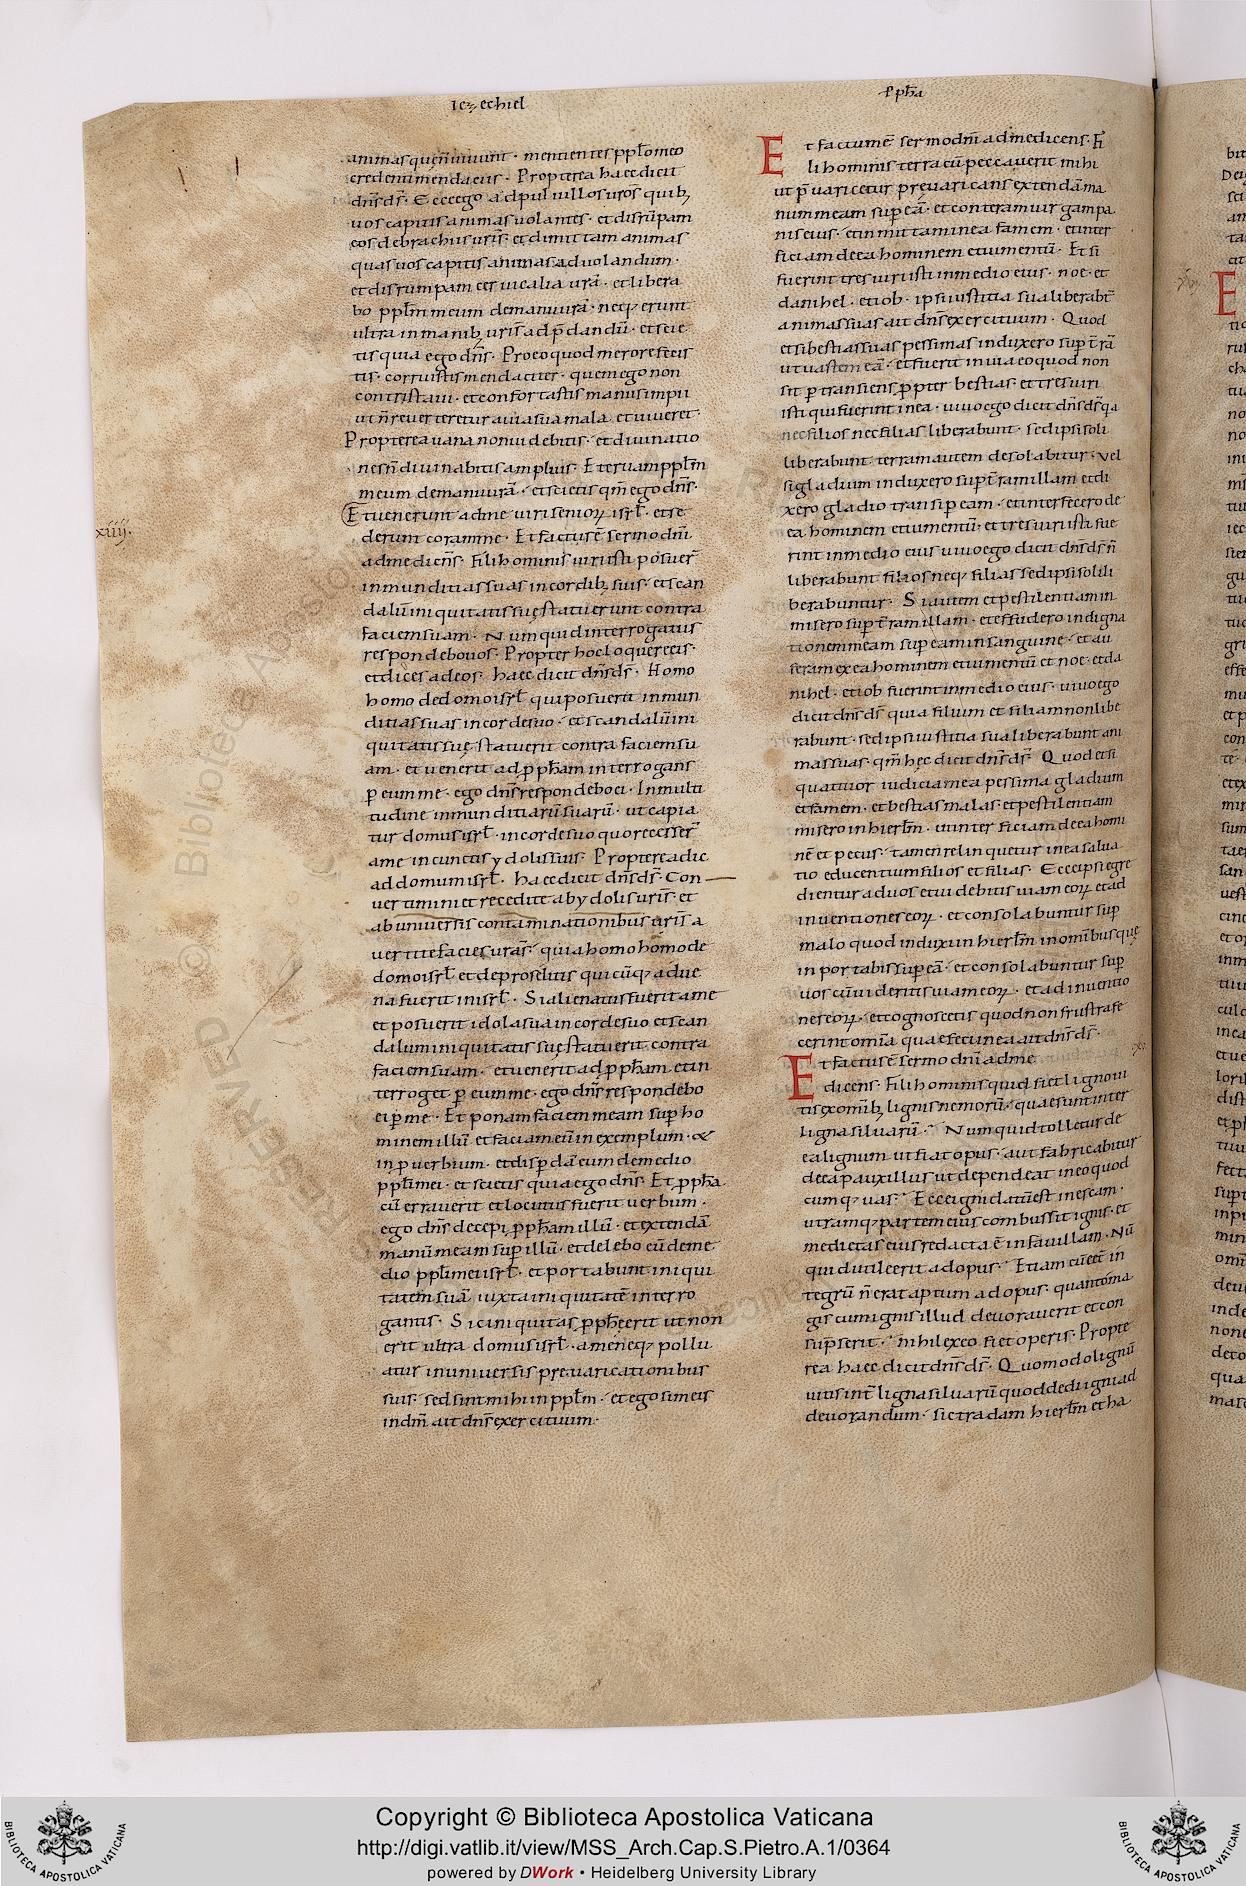 Iezechiel
ꝓph̄a
animas quę n̄ uiuunt · mentientes ppl̄o meo
credenti mendaciis · Propterea haec dicit
dn̄s ds̄ · Ecce ego ad puluillos uros quib;
uos capitis animas uolantes · et disrūpam
eos de brachiis uris̄ · et dimittam animas
quas uos capitis animas ad uolandum ·
et disrumpam ceruicalia urā · et libera
bo ppl̄m meum de manu urā · neq; erunt
ultra in manib; uris̄ ad p̄dandū · et scie
tis quia ego dn̄s · Pro eo quod merore fecis
tis · cor iustis mendaciter · quem ego non
contristaui · et confortastis manus impii
ut n̄ reuerteretur a uia sua mala et uiueret ·
Propterea uana non uidebitis · et diuinatio
nes n̄ diuinabitis amplius · Et eruam ppl̄m
meum de manu urā · et scietis qm̄ ego dn̄s ·
xiiij
Et uenerunt ad me uiri seniorꝝ isrl̄ · et se
derunt coram me · Et factus ē sermo dn̄i
ad me dicēns · Fili hominis uiri isti posuer̄
inmunditias suas in cordib; suis · et scan
dalū iniquitatis suę statuerunt contra
faciem suam · Numquid interrogatus
respondebo uos · Propter hoc loquere eis ·
et dices ad eos · haec dicit dn̄s ds̄ · Homo
homo de domo isrl̄ qui posuerit inmun
ditias suas in corde suo · et scandalū ini
quitatis suę statuerit contra faciem su
am · et uenerit ad ꝓph̄am interrogans
ꝑ eum me · ego dn̄s respondebo ei · In multi
tudine inmunditiarū suarū · ut capia
tur domus isrl̄ · in corde suo quo recesser̄
a me in cunctis ydolis suis · Propterea dic
ad domum isrl̄ · haec dicit dn̄s ds̄ · Con
uertimini et recedite ab ydolis uris̄ · et
ab uniuersis contaminationibus uris̄ a
uertite facies uras̄ · quia homo homo de
domo isrl̄ et de proselitis quicūq; adue
na fuerit in isrl̄ · Si alienatus fuerit a me
et posuerit idola sua in corde suo et scan
dalum iniquitatis suę statuerit contra
faciem suam · et uenerit ad ꝓph̄am et in
terroget ꝑ eum me · ego dn̄s respondebo
ei ꝑ me · Et ponam faciem meam sup̄ ho
minem illū et faciam eū in exemplum · &
in ꝓuerbium · et disꝑdā eum de medio
ppl̄i mei · et scietis quia ego dn̄s · Et ꝓph̄a
cū errauerit et locutus fuerit uerbum ·
ego dn̄s decepi ꝓph̄am illū · et extendā
manū meam sup̄ illū · et delebo eū de me
dio ppl̄i mei isrl̄ · et portabunt iniqui
tatem suā iuxta iniquitatē interro
gantis · Sic iniquitas ꝓph̄ę erit ut non
erit ultra domus isrl̄ · a me neq; pollu
atur in uniuersis preuaricationibus
suis · sed sint mihi in ppl̄m · et ego sim eis
in dm̄ ait dn̄s exercituum ·
Et factum ē sermo dn̄i ad me dicens · Fi
li hominis terra cū peccauerit mihi
ut p̄uaricetur preuaricans extendā ma
num meam sup̄ eā · et conteram uirgam pa
nis eius · et inmittam in ea famem · et inter
ficiam de ea hominem et iumentū · Et si
fuerint tres uiri isti in medio eius · noe · et
danihel · et iob · ipsi iustitia sua liberabt̄
animas suas ait dn̄s exercituum · Quod
et si bestias suas pessimas induxero sup̄ t̄rā
ut uastem eā · et fuerit inuia eo quod non
sit ꝑtransiens ꝓpter bestias · et tres uiri
isti qui fuerint in ea · uiuo ego dicit dn̄s ds̄ q̄a
nec filios nec filias liberabunt · sed ipsi soli
liberabunt terram autem desolabitur · Vel
si gladium induxero sup̄ t̄ram illam et di
xero gladio transi ꝑ eam · et interfecero de
ea hominem et iumentū · et tres uiri isti fue
rint in medio eius uiuo ego dicit dn̄s ds̄ n̄
liberabunt filios neq; filias sed ipsi soli li
berabuntur · Si autem et pestilentiam in
misero sup̄ t̄ram illam · et effudero indigna
tionem meam sup̄ eam in sanguine · et au
feram ex ea hominem et iumentū et noe · et da
nihel · et iob fuerint in medio eius · uiuo ego
dicit dn̄s ds̄ quia filium et filiam non libe
rabunt · sed ipsi iustitia sua liberabunt ani
mas suas · qm̄ hęc dicit dn̄s ds̄ · Quod et si
quattuor iudicia mea pessima gladium
et famem · et bestias malas · et pestilentiam
misero in hierlm̄ · ut interficiam de ea homi
nē et pecus · tamen relinquetur in ea salua
tio educentium filios et filias · Ecce ipsi egre
dientur ad uos et uidebitis uiam eorꝝ et ad
inuentiones eorꝝ · et consolabuntur sup̄
malo quod induxi in hierlm̄ in omnibus quę
inportabis sup̄ eā · et consolabuntur sup̄
uos cū uideritis uiam eorꝝ · et adinuentio
nes eorꝝ · et cognoscetis quod non frustra fe
cerint omnia quae feci in ea ait dn̄s ds̄ ·
Et factus ē sermo dn̄i ad me
dicens · Fili hominis quid fiet ligno ui
tis ex omīb; lignis nemorū · quae sunt inter
ligna siluarū · Numquid tolletur de
ea lignum ut fiat opus · aut fabricabitur
de ea pauxillus ut dependeat in eo quod
cumq; uas · Ecce igni datū est in escam ·
utramq; partem eius combussit ignis · et
medietas eius redacta ē in fauillam · Nū
quid utile erit ad opus · Etiam cū eēt in
tegrū n̄ erat aptum ad opus · quanto ma
gis cum ignis illud deuorauerit et con
supserit · nihil ex eo fiet operis · Propte
rea haec dicit dn̄s ds̄ · Quomodo lignū
uitis int̄ ligna siluarū quod dedi igni ad
deuorandum · sic tradam hierlm̄ et ha
Copyright © Biblioteca Apostolica Vaticana
http://digi.vatlib.it/view/MSS_Arch.Cap.S.Pietro.A.1/0364
powered by DWork • Heidelberg University Library
BIBLIOTECA APOSTOLICA VATICANA
BIBLIOTECA APOSTOLICA VATICANA